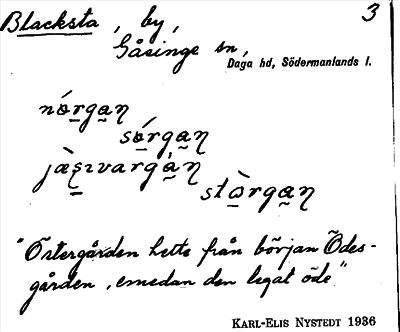 Blacksta, by, 3
Gåsinge sn,
Daga hd, Södermanlands l.
nórgaŋ
sórgaŋ
jæ̀ʂɪvargàŋ
stòrgaŋ
"Östergården hette från början Ödes-
gården, emedan den legat öde"
KARL-ELIS NYSTEDT 1936